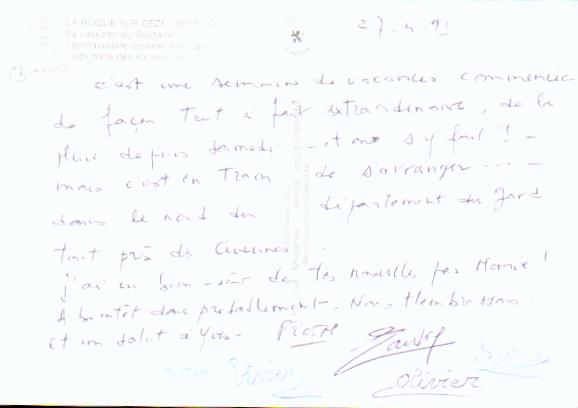 LA ROQUE SUR CEZE
La cascade du Sautadet
Spectaculaire érosion des eaux de
Cèze dans des roches
27.4.93
c'est une semaine de vacances commencée
de façon tout à fait extraordinaire ; de la
pluie depuis samedi - et on s'y fait ! -
mais c'est en train de s'arranger ... -
dans le nord du département du Gard
tout près des Cévennes.
j'ai eu bien sûr de tes nouvelles par Mamie !
A bientôt donc probablement. Nous t'embrassons.
et un salut à Yves - Pierre
Olivier